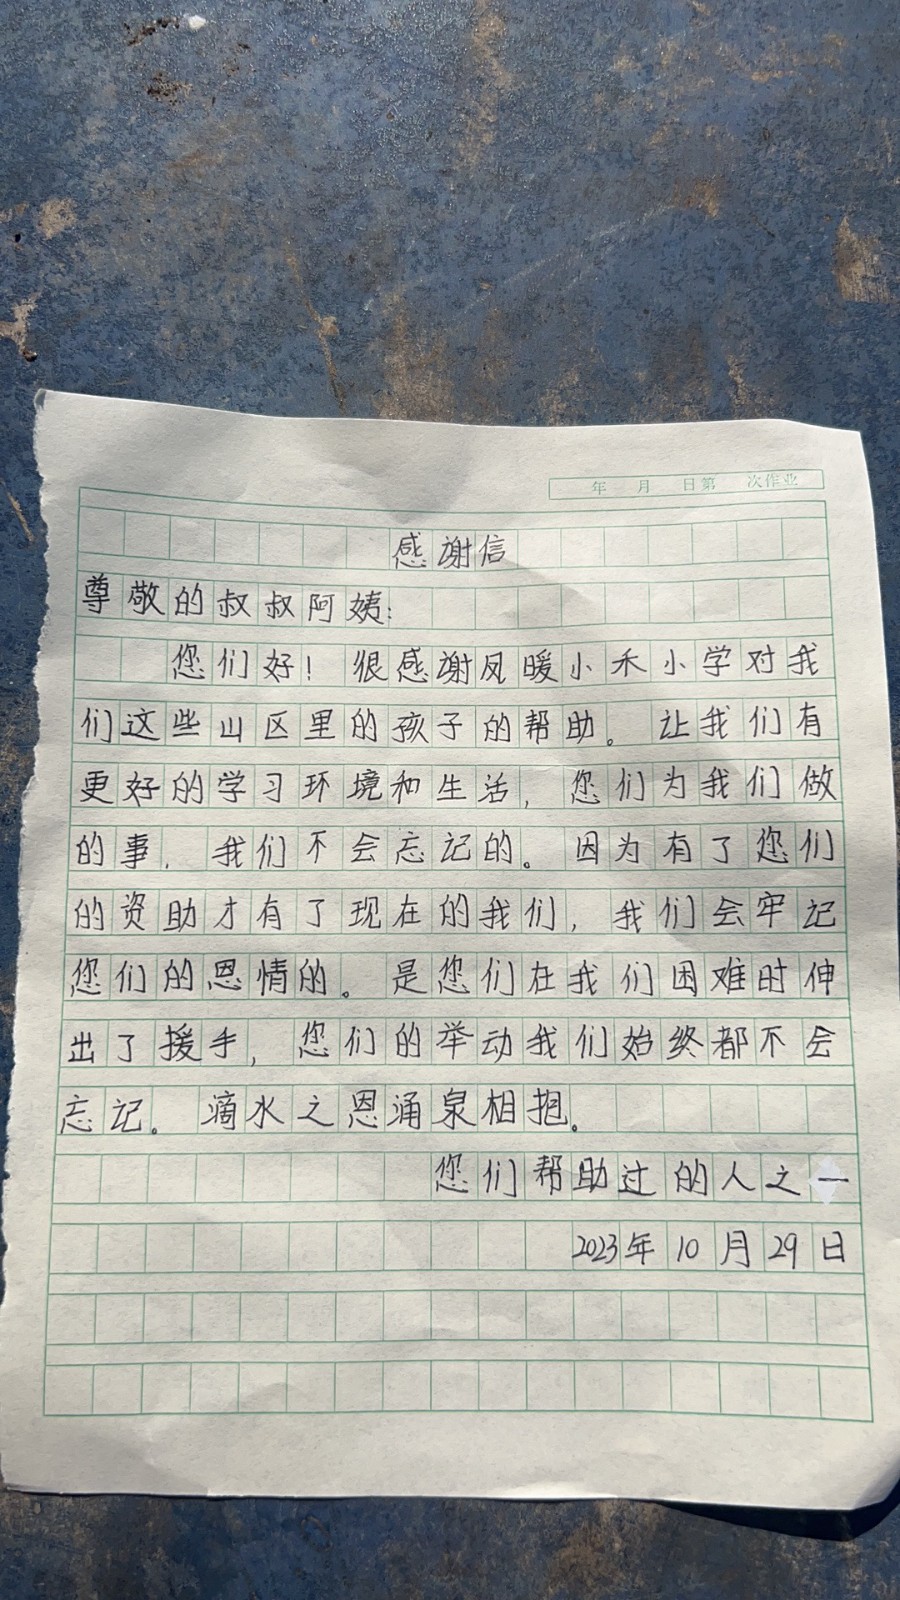 年 月 日第 次作业
感谢信
尊敬的叔叔阿姨：
您们好！ 很感谢凤暖小禾小学对我
们这些山区里的孩子的帮助。 让我们有
更好的学习环境和生活，您们为我们做
的事，我们不会忘记的。因为有了您们
的资助才有了现在的我们，我们会牢记
您们的恩情的。是您们在我们困难时伸
出了援手，您们的举动我们始终都不会
忘记。滴水之恩涌泉相抱。
您们帮助过的人之一
2023年10月29日